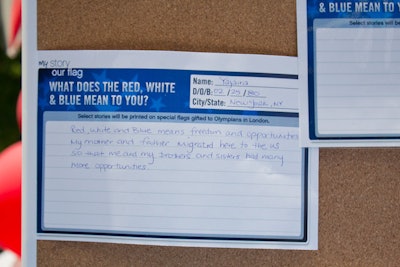 my story
our flag
WHAT DOES THE RED, WHITE
& BLUE MEAN TO YOU?
Name:
D/O/B: 02/25/
City/State: New York, NY
Select stories will be printed on special flags gifted to Olympians in London.
Red, white and Blue means freedom and opportunities
My mother and father migrated here to the US
so that me and my brothers and sisters has many
more opportunities.
& BLUE MEAN TO YOU?
Select stories will be